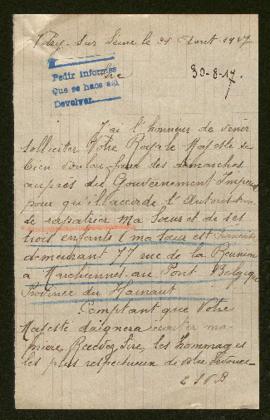 Vitry sur Seine le 21 Août 1917
Pedir informes
que se haga así
Devolver
30-8-17.
Sire
J'ai l'honneur de venir
solliciter Votre Royale Majesté de
bien vouloir faire des démarches
auprès du Gouvernement Imperial
pour qu'il accorde l'autorisation
de rapatrier ma Soeur et de ses
trois enfants (ma soeur est française
demeurant 77 rue de la Réunion
à Marchiennes au Pont Belgique
Province du Hainaut
Comptant que Votre
Majesté daignera
Recevez Sire, les hommages
les plus respectueux de votre